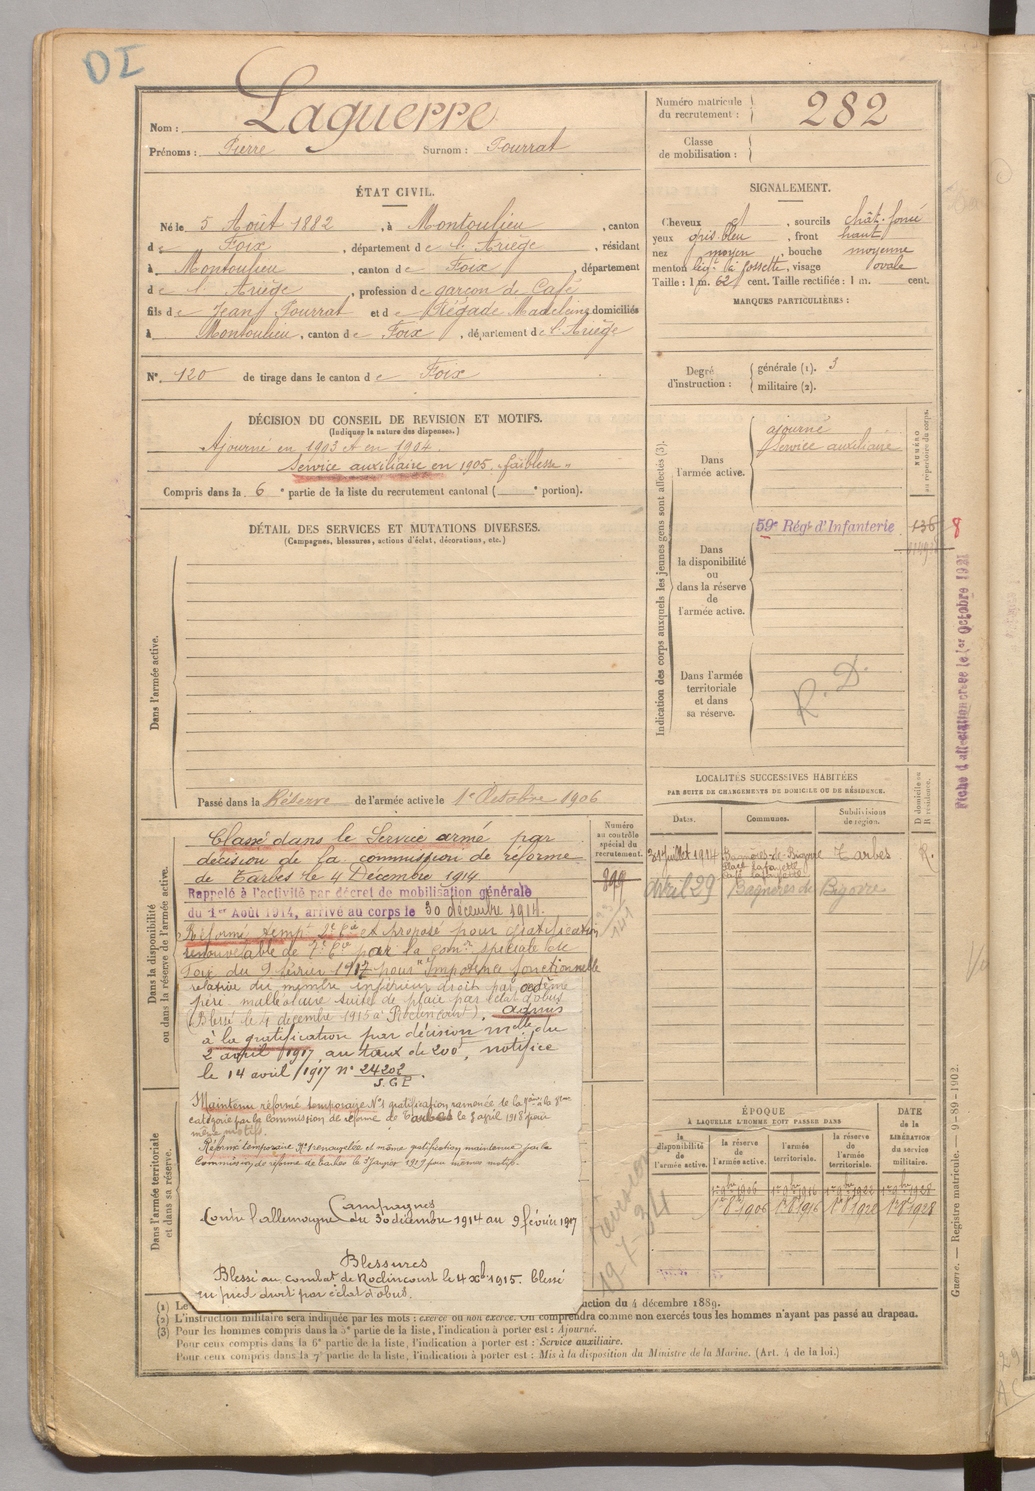 DI
Nom : Laguerre
Prénoms : Pierre Surnom : Fourrat
Numéro matricule du recrutement : 282
Classe de mobilisation :
ÉTAT CIVIL.
Né le 5 Août 1882, à Montoulieu, canton
de Foix, département de l'Ariège, résidant
à Montoulieu, canton de Foix, département
de l'Ariège, profession de garçon de Café
fils de Jean Fourrat et de Madeleine domiciliés
à Montoulieu, canton de Foix, département de l'Ariège
N° 120 de tirage dans le canton de Foix
SIGNALEMENT.
Cheveux et, sourcils chât. foncé
yeux gris bleu, front haut
nez moyen, bouche moyenne
menton à fossette, visage ovale
Taille : 1 m. 62 cent. Taille rectifiée : 1 m. cent.
MARQUES PARTICULIÈRES :
Degré d'instruction : générale (1). 3
militaire (2).
DÉCISION DU CONSEIL DE REVISION ET MOTIFS.
(Indiquer la nature des dispenses.)
Ajourné en 1903 et en 1904
Service auxiliaire en 1905 "faiblesse"
Compris dans la 6e partie de la liste du recrutement cantonal ( e portion).
DÉTAIL DES SERVICES ET MUTATIONS DIVERSES.
(Campagnes, blessures, actions d'éclat, décorations, etc.)
Dans l'armée active.
Passé dans la Réserve de l'armée active le 1er Octobre 1906
Indication des corps auxquels les jeunes gens sont affectés (3).
NUMÉRO au répertoire du corps.
Dans l'armée active.
ajourné
Service auxiliaire
Dans la disponibilité ou dans la réserve de l'armée active.
59e Régt d'Infanterie
136
8
Dans l'armée territoriale et dans sa réserve.
R. D.
Fiche d'affectation créée le 1er Octobre 1921
LOCALITÉS SUCCESSIVES HABITÉES
PAR SUITE DE CHANGEMENTS DE DOMICILE OU DE RÉSIDENCE.
D domicile ou R résidence.
Dates. Communes. Subdivisions de région.
31 juillet 1914 Bagnères-de-Bigorre Tarbes R.
Place Lafayette
Café Lafayette
Avril 29 Bagnères de Bigorre
Dans la disponibilité ou dans la réserve de l'armée active.
Numéro au contrôle spécial du recrutement.
899
Classé dans le Service armé par
décision de la commission de réforme
de Tarbes le 4 Décembre 1914
Rappelé à l'activité par décret de mobilisation générale
du 1er Août 1914, arrivé au corps le 30 décembre 1914.
Réformé temp. 2e Cie et Proposé pour gratification
renouvelable de 7e Cie par la Comn spéciale de
Foix du 9 février 1917 pour "Impotence fonctionnelle
relative du membre inférieur droit par oedème
péri malléolaire suite de plaie par éclat d'obus
(Blessé le 4 décembre 1915 à Roclincourt). admis
à la gratification par décision melle du
2 avril 1917, au taux de 200f, notifiée
le 14 avril 1917 n° 24202
S.G.P.
Maintenu réformé temporaire N° 1 gratification ramenée de la 7ème à la 8ème
catégorie par la Commission de réforme de Tarbes le 5 april 1918 pour
même motif.
Réformé temporaire N° 1 renouvelée et même gratification maintenue par la
Commission de réforme de Tarbes le 3 Janvier 1919 pour mêmes motifs.
Campagnes
Contre l'allemagne du 30 décembre 1914 au 9 février 1917
Blessures
Blessé au combat de Roclincourt le 4 Xb 1915. blessé
au pied droit par éclat d'obus.
Dans l'armée territoriale et dans sa réserve.
19-7-34
ÉPOQUE
À LAQUELLE L'HOMME DOIT PASSER DANS
DATE de la LIBÉRATION du service militaire.
la disponibilité de l'armée active. la réserve de l'armée active. l'armée territoriale. la réserve de l'armée territoriale.
1er 8b 1906 1er 8b 1916 1er 8b 1922 1er 8b 1928
(1) Le
uction du 4 décembre 1889.
(2) L'instruction militaire sera indiquée par les mots : exercé ou non exercé. On comprendra comme non exercés tous les hommes n'ayant pas passé au drapeau.
(3) Pour les hommes compris dans la 5e partie de la liste, l'indication à porter est : Ajourné.
Pour ceux compris dans la 6e partie de la liste, l'indication à porter est : Service auxiliaire.
Pour ceux compris dans la 7e partie de la liste, l'indication à porter est : Mis à la disposition du Ministre de la Marine. (Art. 4 de la loi.)
Guerre. — Registre matricule. — 9-89-1902.